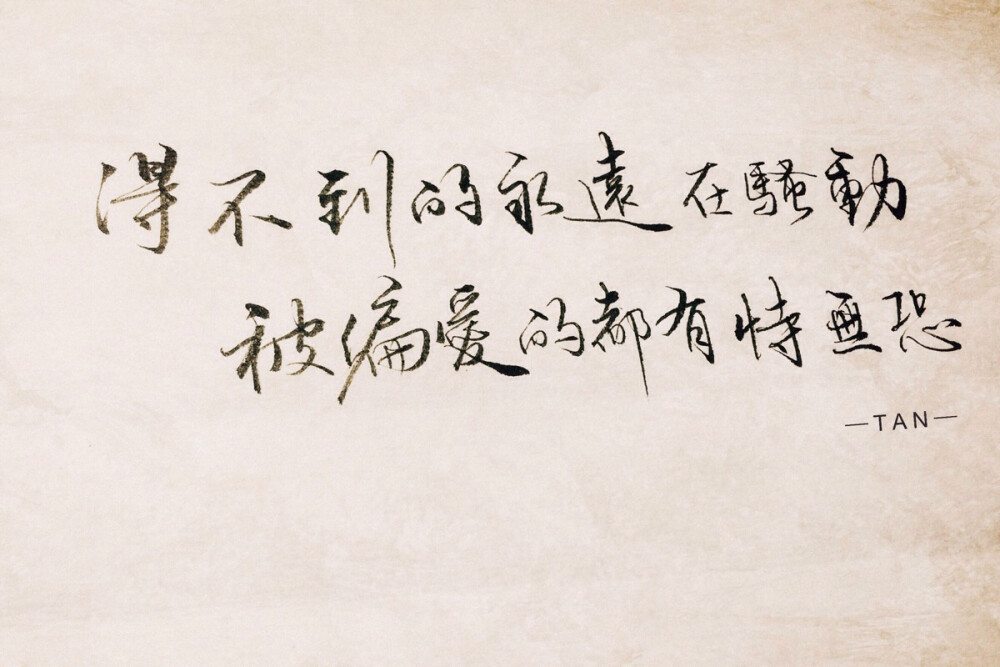 得不到的永遠在騷動
被偏愛的都有恃無恐
—TAN—